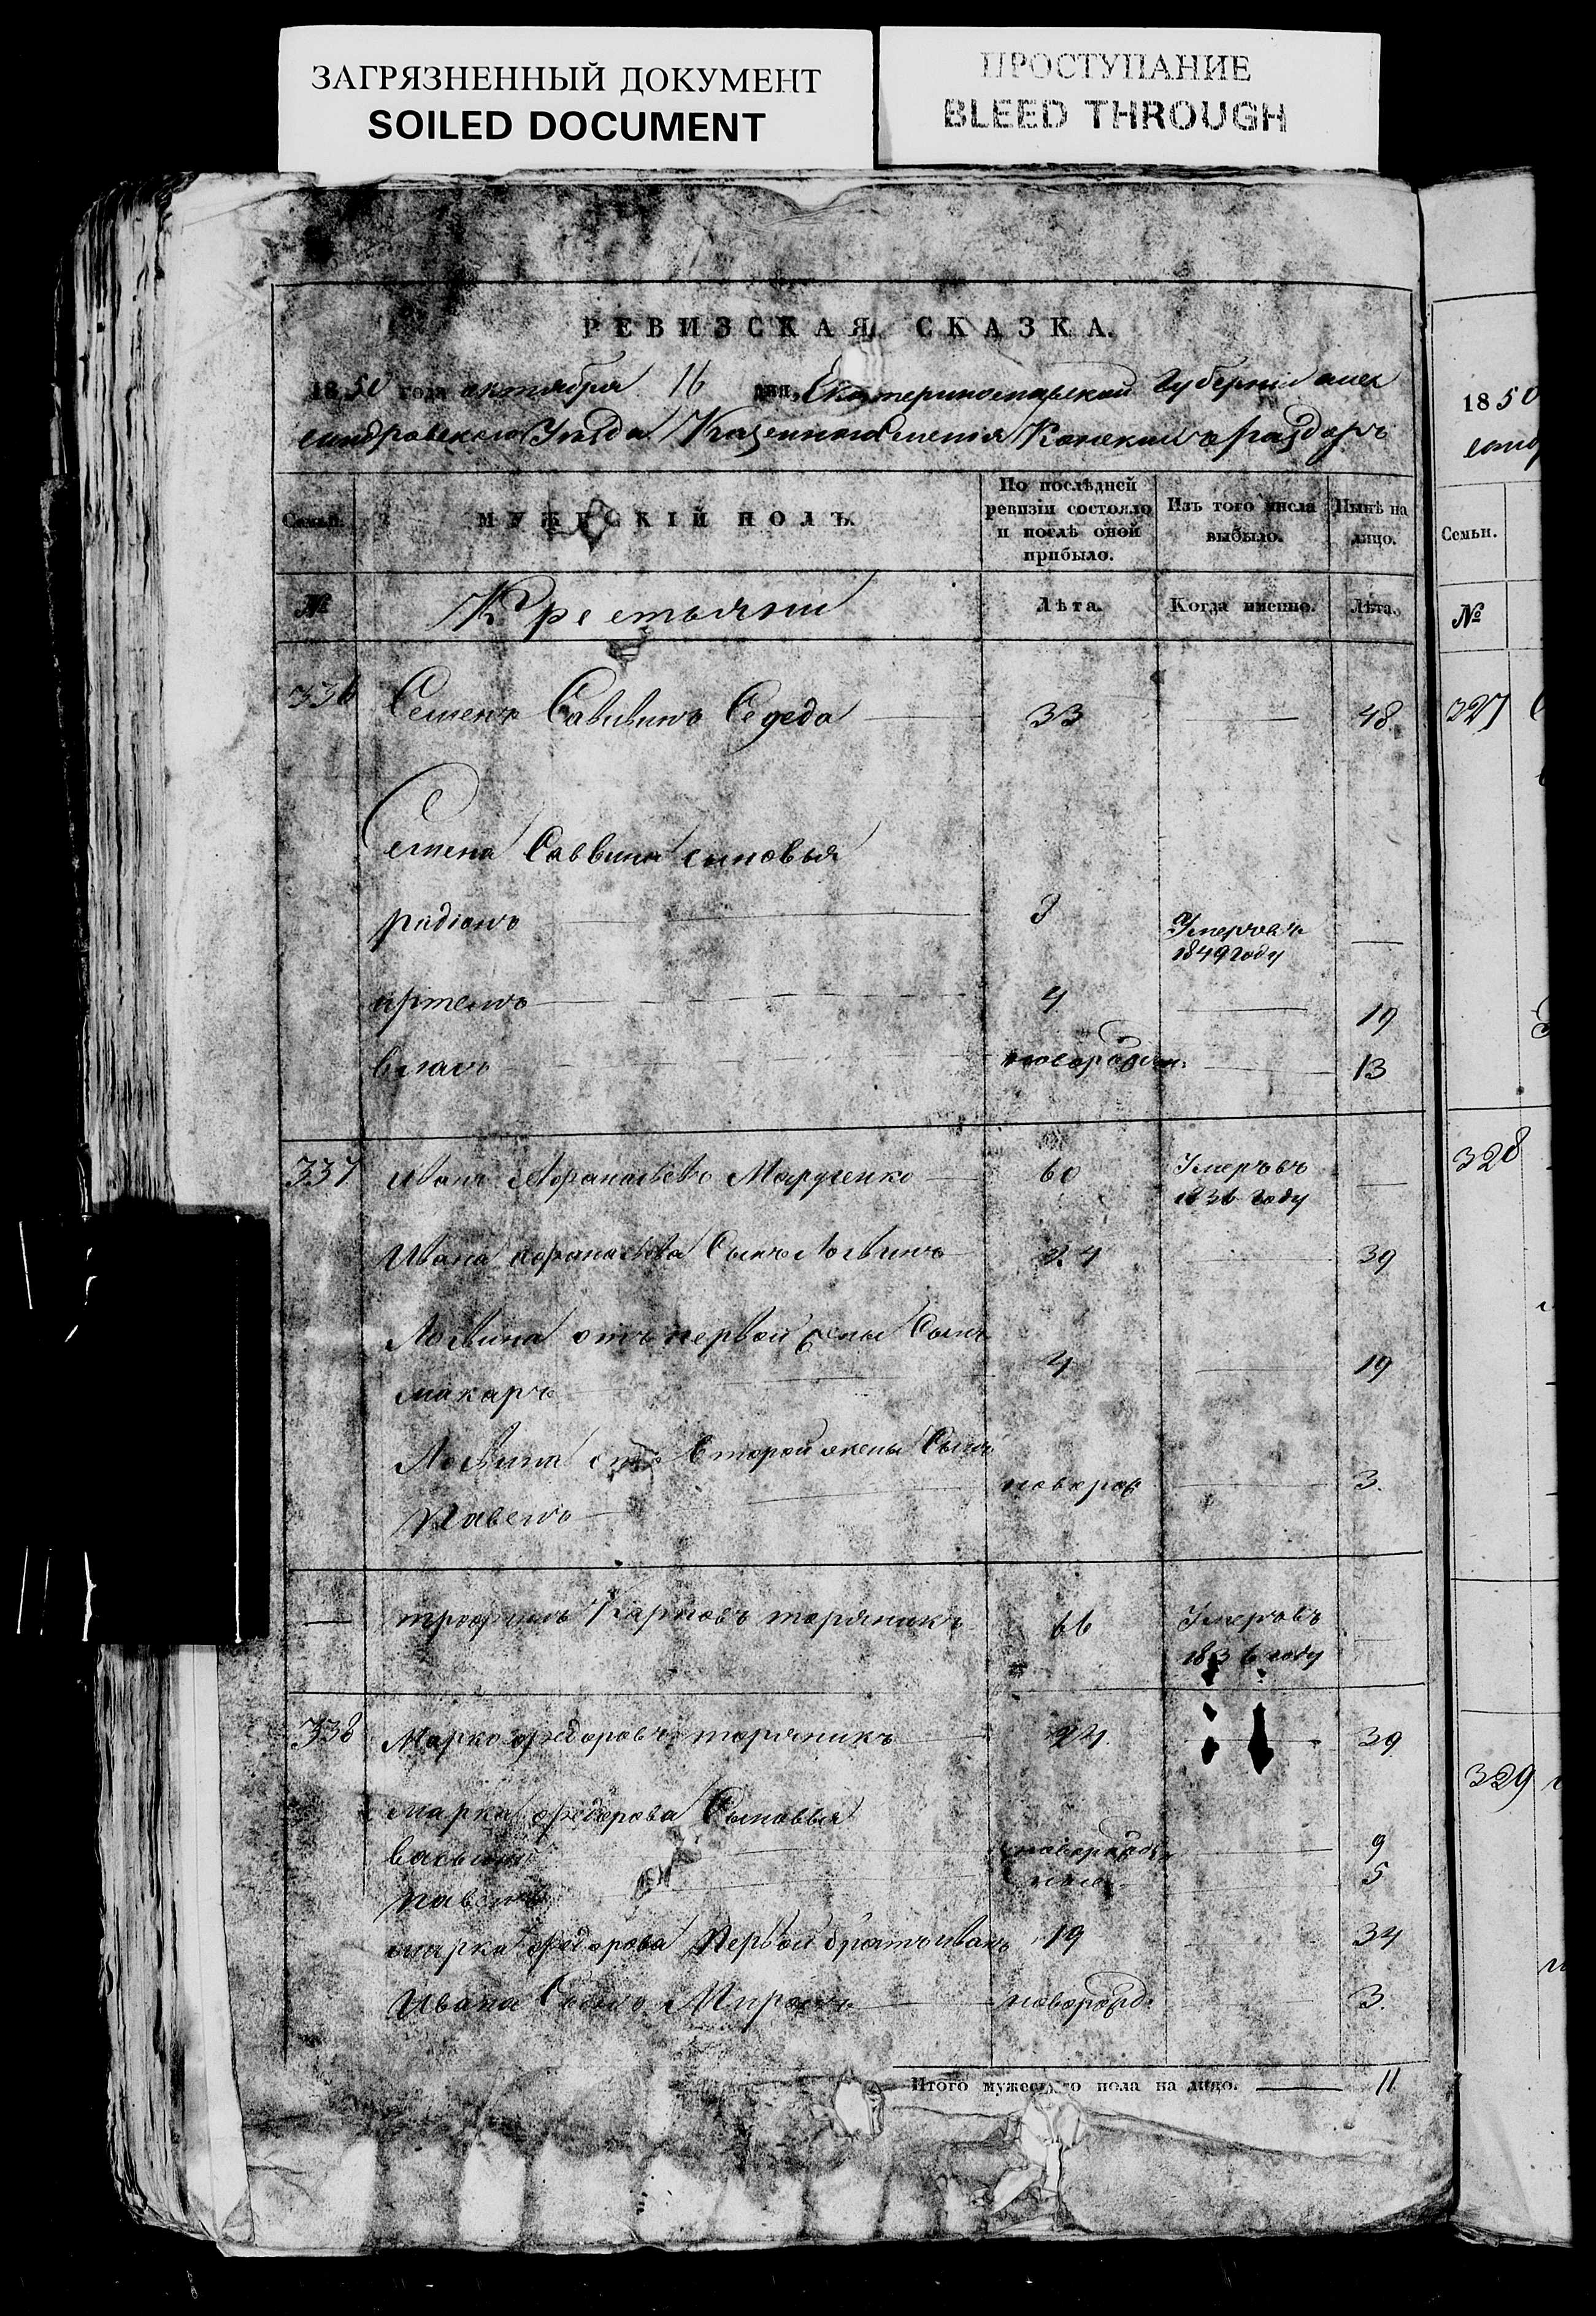 ЗАГРЯЗНЕННЫЙ ДОКУМЕНТ
SOILED DOCUMENT
ПРОСТУПАНИЕ
BLEED THROUGH
РЕВИЗСКАЯ СКАЗКА.
1850 года октября 16 дня, Екатеринославской Губернии алек
сандровского Уезда Казенного Селения Конских раздор
Семьи. МУЖЕСКІЙ ПОЛЪ. По послѣдней ревизіи состояло и послѣ оной прибыло. Изъ того числа выбыло. Нынѣ на лицо.
№ Крестьяни Лѣта. Когда именно. Лѣта.
336 Семенъ Саввинъ Середа 33 48
Семена Саввина синовья
радіонъ 8 Умеръ въ 1849 году
артемъ 4 19
власъ новорожден. 13
337 Иванъ Афанасьевъ Марченко 60 Умеръ въ 1836 году
Ивана афанасьева Сынъ Логвинъ 24 39
Логвина отъ первой жены Сынъ
макаръ 4 19
Логвина отъ второй жены Сынъ
Павелъ новорож 3.
трофимъ Карповъ торяникъ 66 Умеръ въ 1836 году
338 Марко федоровъ торяникъ 24. 39
марка федорова Сыновья
василий новорожден 9
павелъ 5
марка федорова Первой братъ иванъ 19 34
Ивана Сынъ Миронъ новорожд. 3.
Итого мужескаго пола на лицо. 11
1850
Семьи.
№
327
328
329